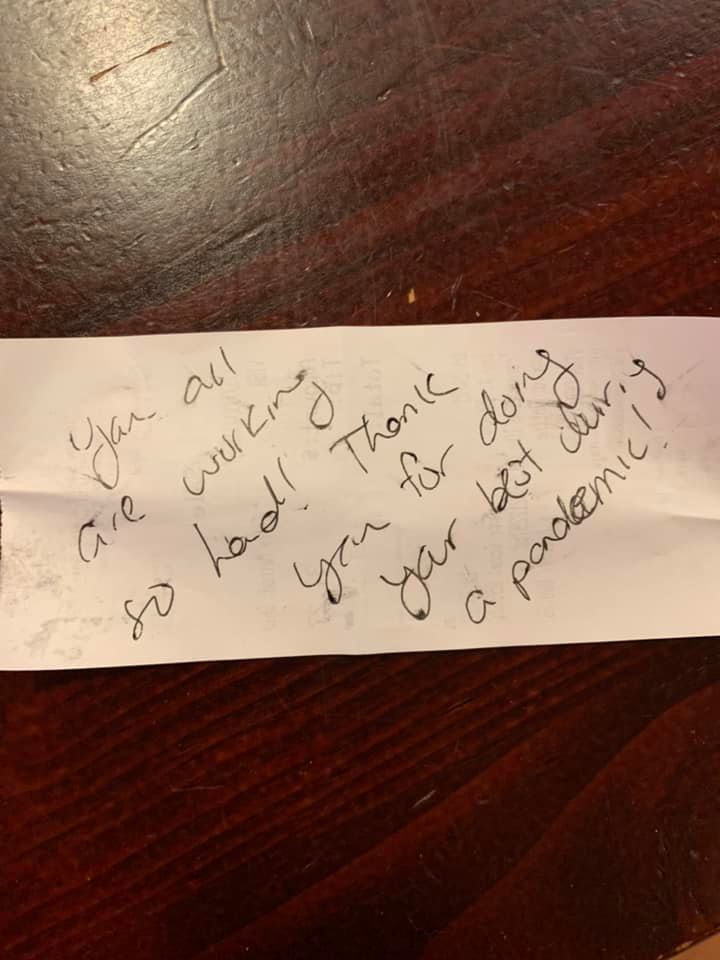 You all
are working
so hard! Thank
you for doing
your best during
a pandemic!